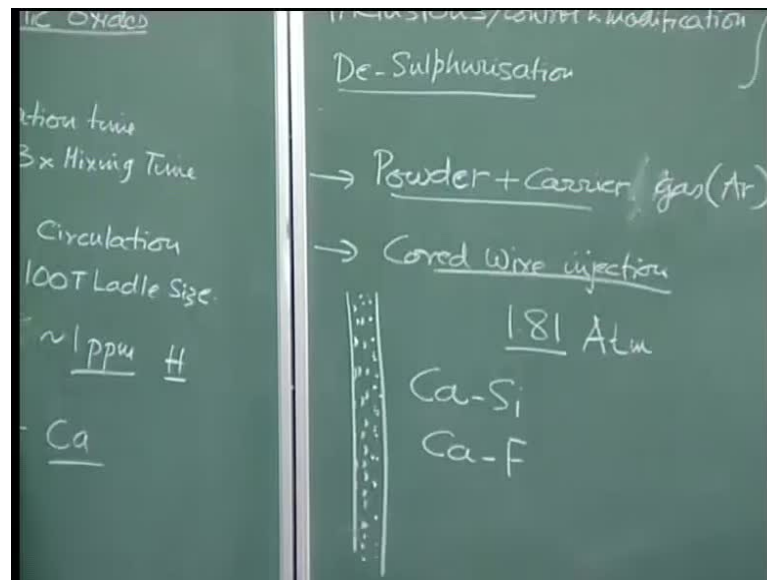 tic Oxides
ation time
3x Mixing Time
Circulation
100T Ladle Size.
~1 ppm H
- Ca
Inclusions/control & modification
De-Sulphurisation
→ Powder + Carrier gas (Ar)
→ Cored Wire injection
1.81 Atm
Ca-Si
Ca-F